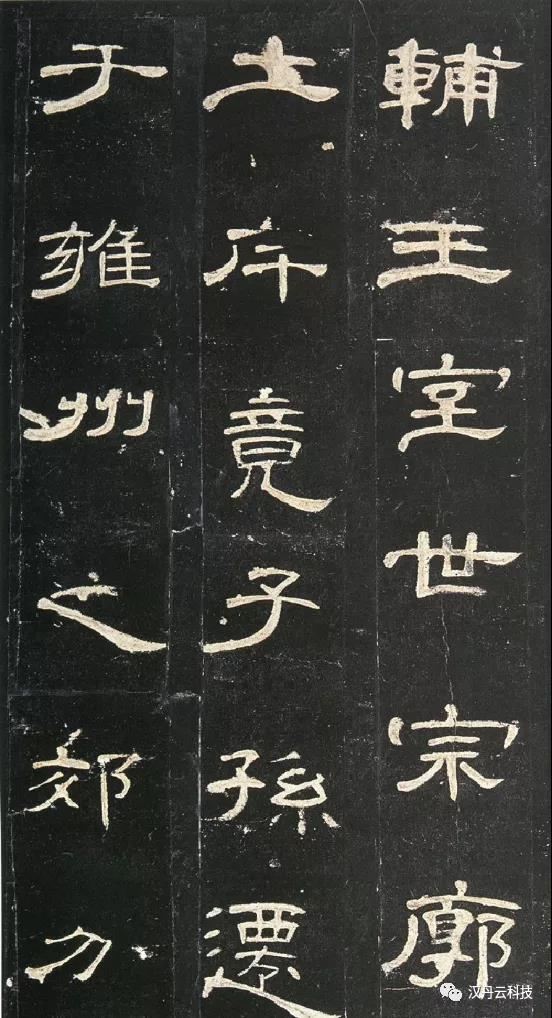 輔王室世宗廓
土斥竟子孫遷
于雍州之郊分
汉丹云科技